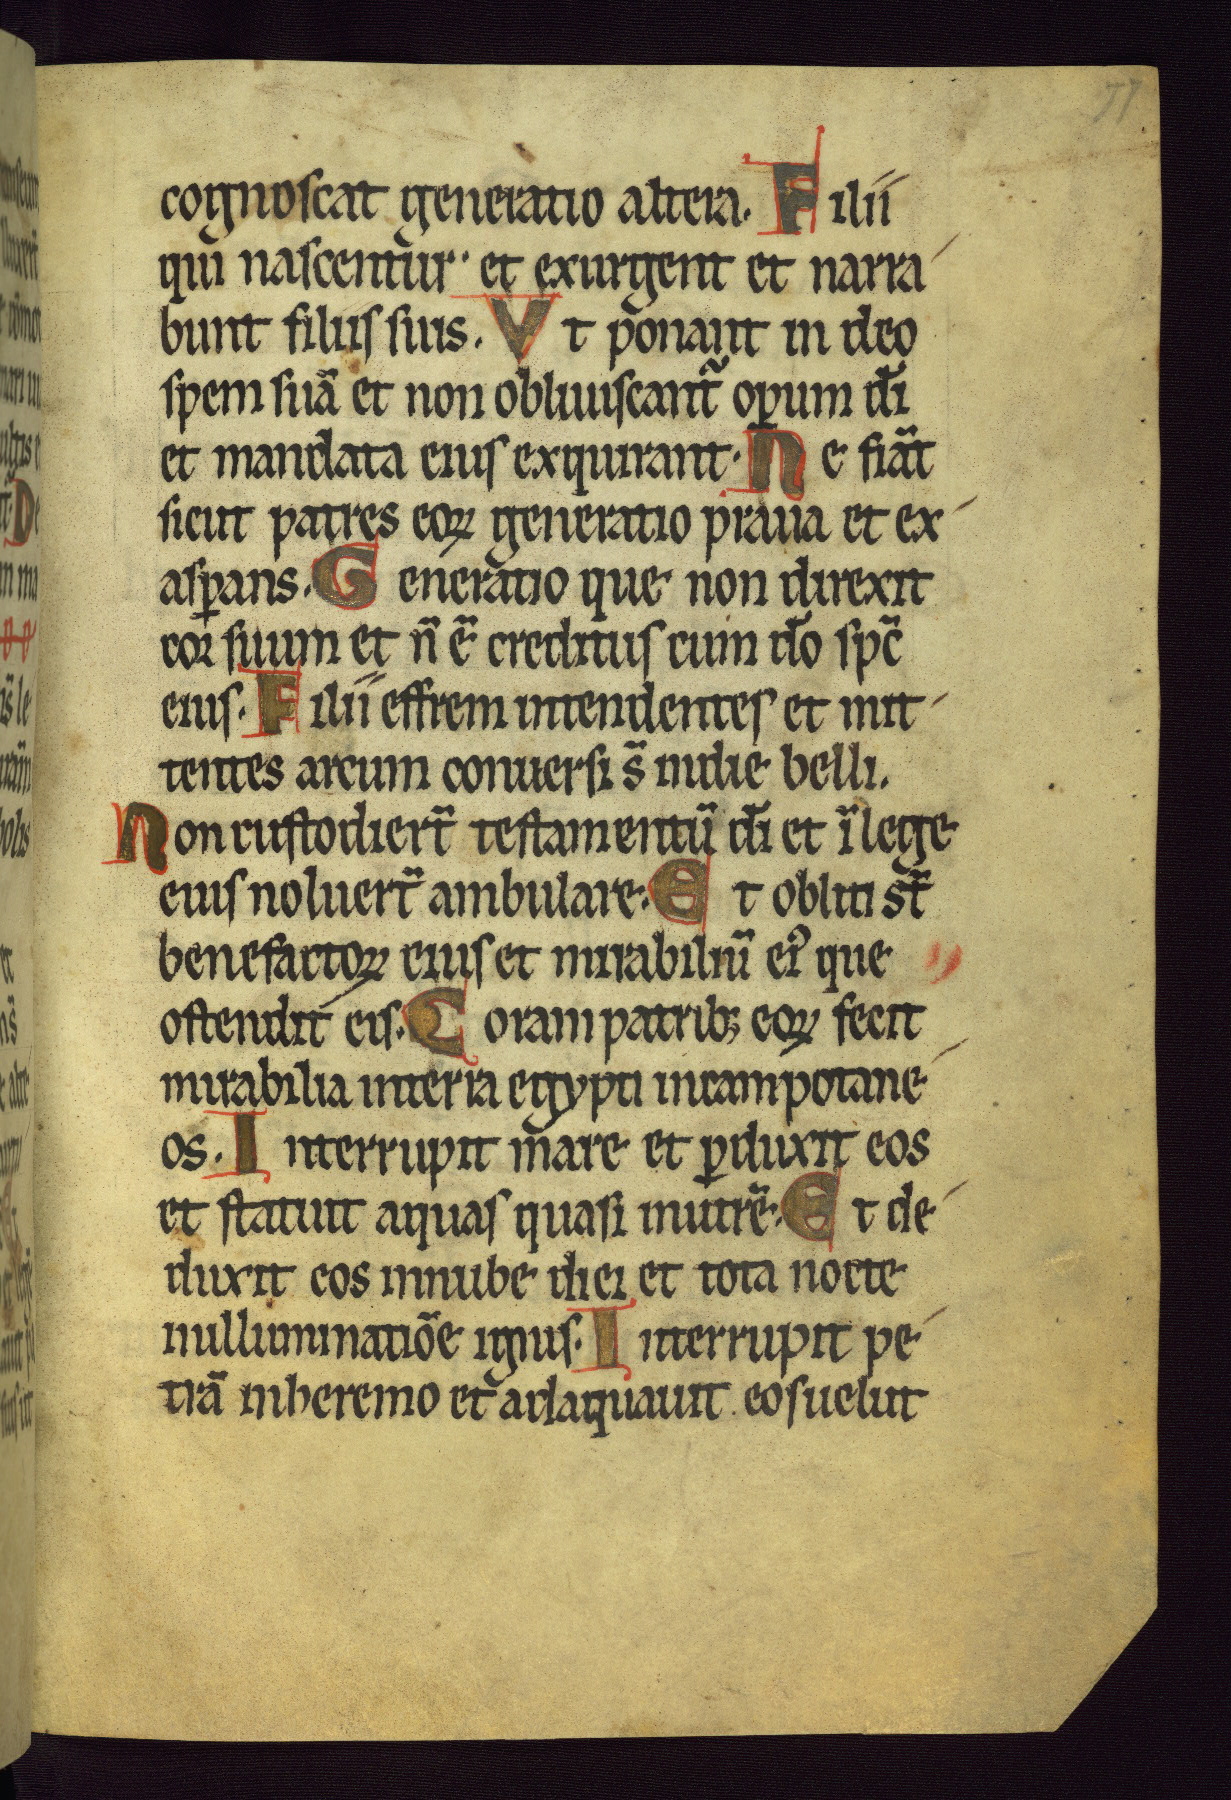 cognoscat generatio altera. Filii
qui nascentur· et exurgent et narra
bunt filiis suis. Vt ponant in deo
spem suā et non obliuiscant᷑ oꝑum dī
et mandata eius exquirant· Ne fiāt
sicut patres eoꝝ generatio praua et ex
asꝑans. Generatio que non direxit
cor suum et n̄ ē creditus cum dō spc̄
eius. Filii effrem intendentes et mit
tentes arcum conuersi s̄ indie belli.
Non custodiert̄ testamentū dī et ī lege
eius noluert̄ ambulare. Et obliti st̄
benefactoꝝ eius et mirabiliū eiꝰ que
ostendit eis. Coram patribꝫ eoꝝ fecit
mirabilia interra egypti incampotane
os. Interrupit mare et ꝑduxit eos
et statuit aquas quasi inutrē. Et de
duxit eos innube diei et tota nocte
inilluminatiōe ignis. Interrupit pe
trā inheremo et adaquauit eos uelut